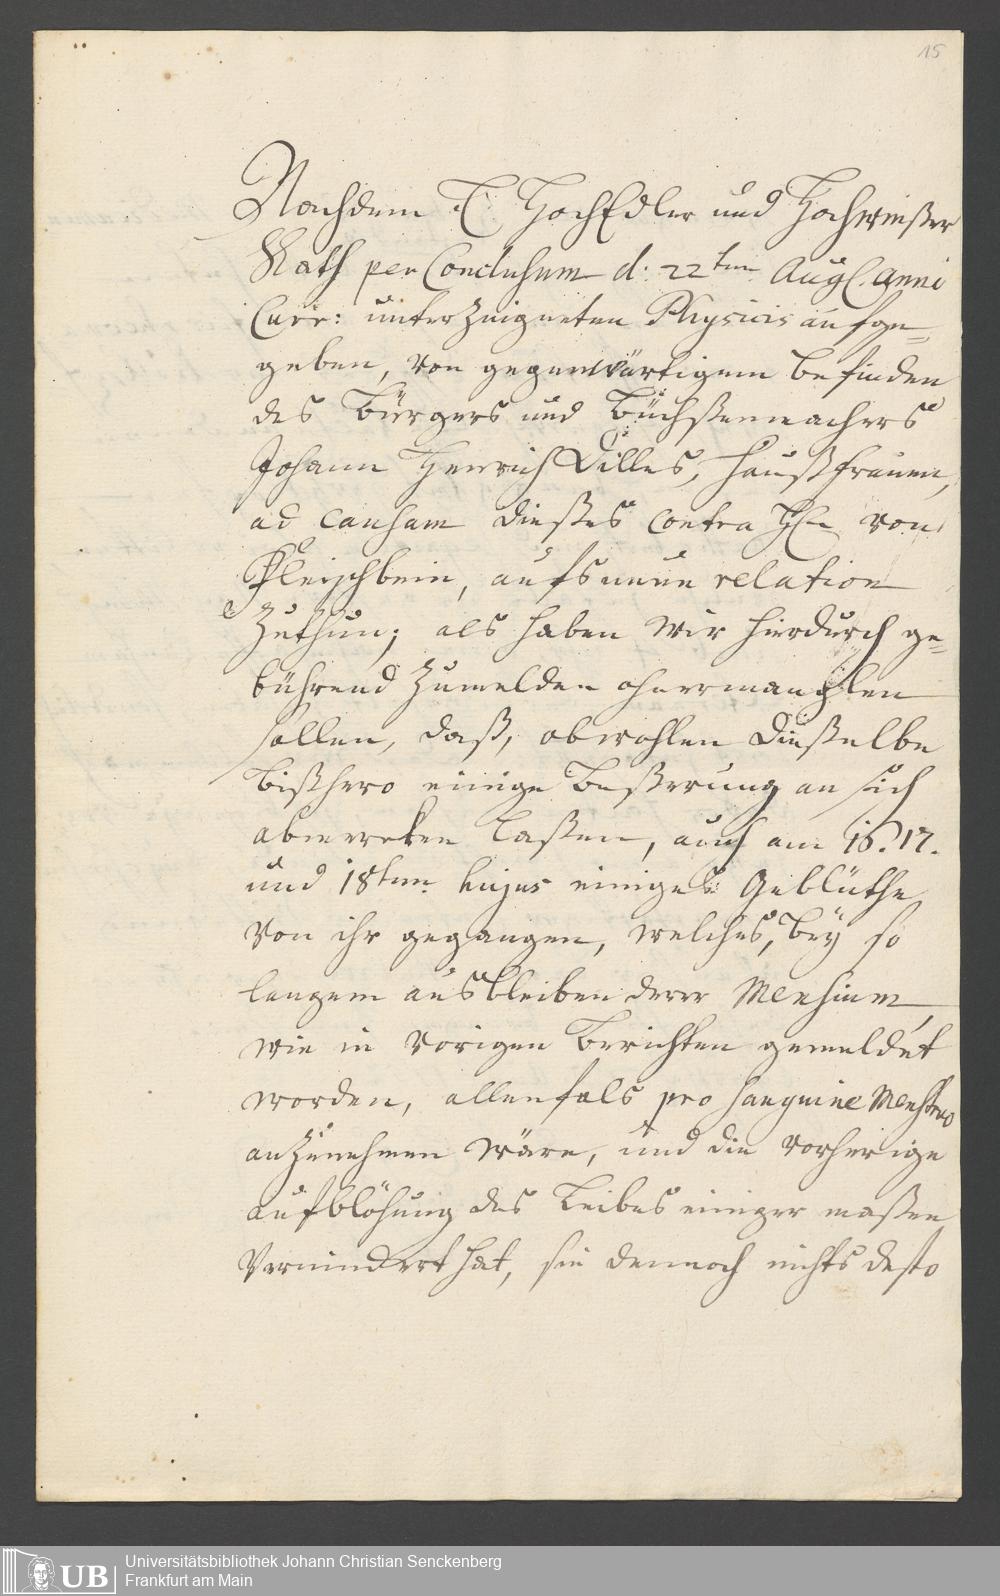 15
Nachdem E. HochEdler und Hochweißer
Rath per Conclusum d. 22ten Aug. anni
Curr: unterzeigneten Physicis aufge=
geben, von gegenwärtigem befinden
des Bürgers und Büchßenmachers
Johann Henrich Dilles, Haußfrauen,
ad causam dießes contra H. von
Fleischbein, aufs neue relation
zuthun; als haben wir hierdurch ge=
bührend zumelden ohnermanglen
sollen, daß, obwohlen dießelbe
bißhero einige beßerung an sich
abmerken laßen, auch am 16. 17.
und 18ten hujus einiges Geblüthe
von ihr gegangen, welches, bey so
langem ausbleiben derer Mensium,
wie in vorigen berichten gemeldet
worden, allenfals pro sanguine Menstruo
anzunehmen wäre, und die vorherige
aufblöhung des Leibes einiger maßen
vermindert hat, sie dennoch nichts desto
UB
Universitätsbibliothek Johann Christian Senckenberg
Frankfurt am Main